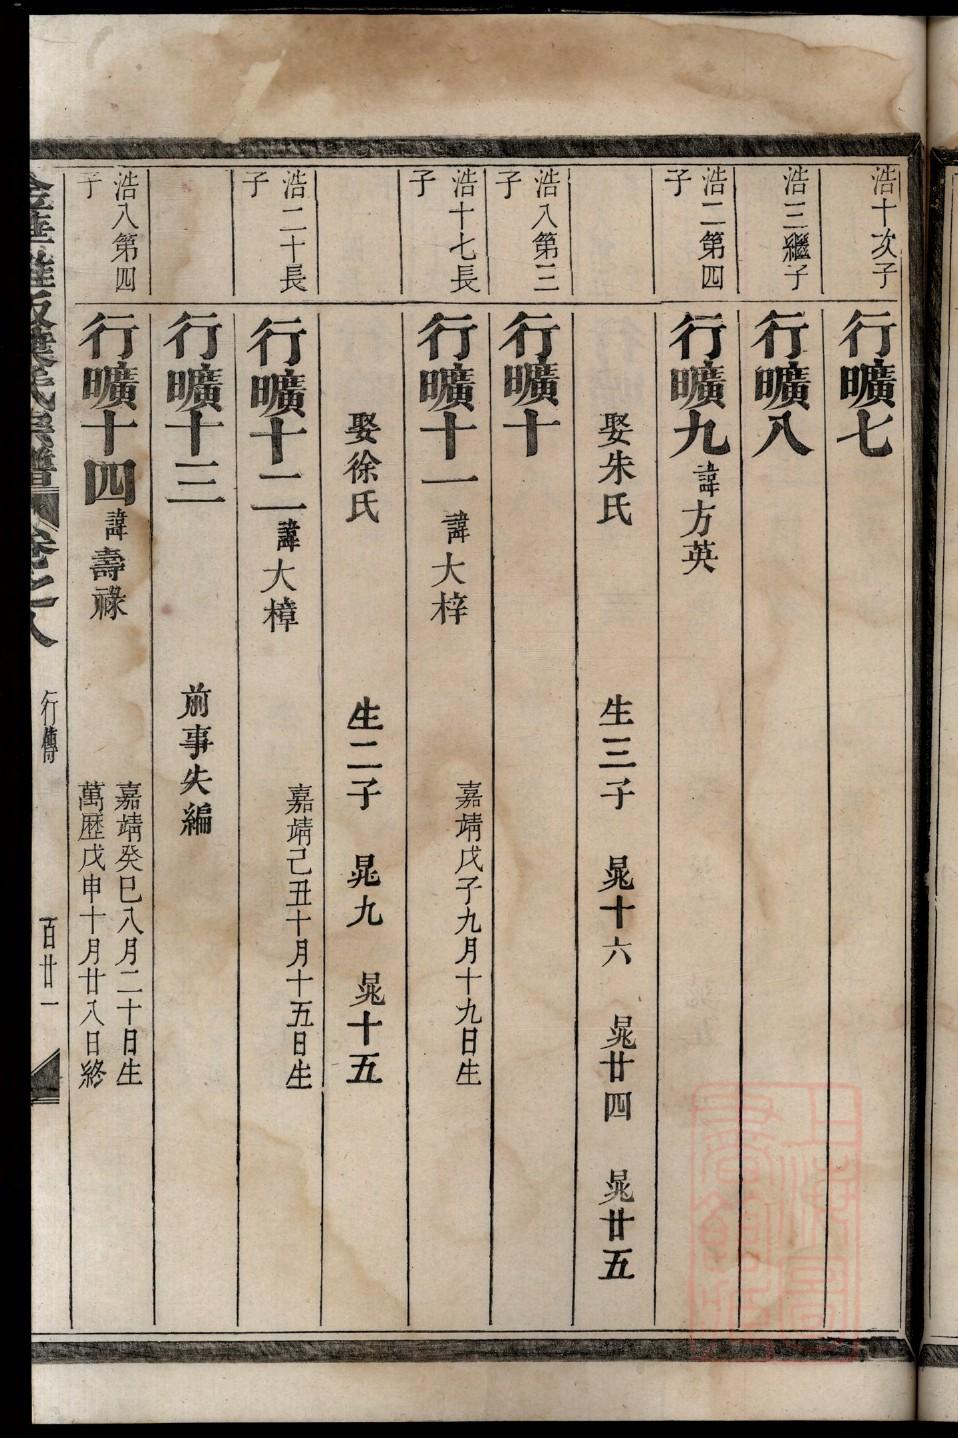 浩十次子
行曠七
浩三繼子
行曠八
浩二第四子
行曠九 諱方英
娶朱氏 生三子 晁十六 晁廿四 晁廿五
浩八第三子
行曠十
浩十七長子
行曠十一 諱大梓 嘉靖戊子九月十九日生
娶徐氏 生二子 晁九 晁十五
浩二十長子
行曠十二 諱大樟 嘉靖己丑十月十五日生
行曠十三 前事失編
浩八第四子
行曠十四 諱壽祿 嘉靖癸巳八月二十日生
萬歷戊申十月廿八日終
氏宗譜 卷之八 行傳 百廿一